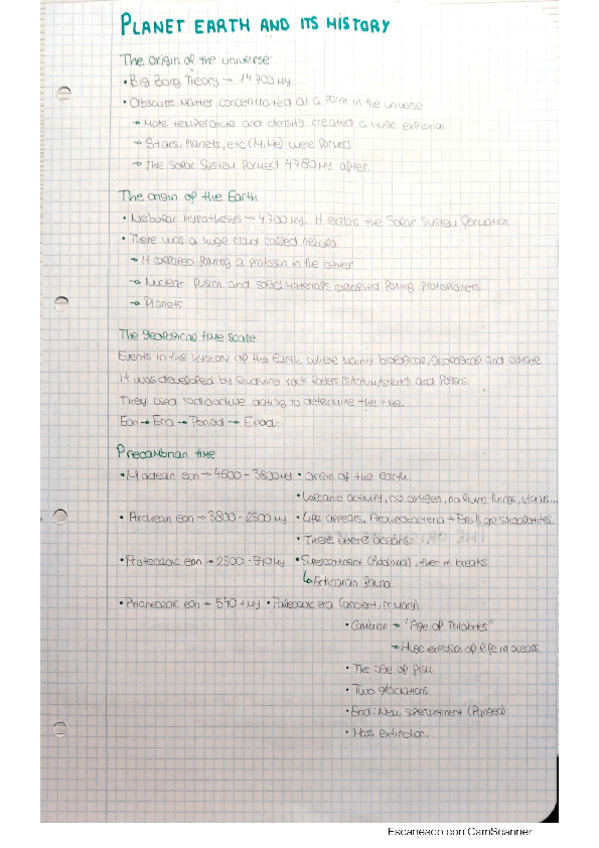 PLANET EARTH AND ITS HISTORY
The origin of the universe
• Big Bang Theory → 14 700 My
• Obscure matter concentrated at a point in the universe
→ More temperature and density created a huge explosion
→ Stars, Planets, etc (H, He) were formed
→ The Solar System formed 4780 My after.
The origin of the Earth
• Nebular hypothesis → 4700 My. It explains the Solar System formation
• There was a huge cloud called nebula
→ It collapsed forming a protosun in the center
→ Nuclear fusion and solid materials forming protoplanets
→ Planets
The geological time scale
Events in the history of the Earth where mainly biological, geological and climate.
It was developed by studying rock layers (stratum/strata) and fossils.
They used radioactive dating to determine the time.
Eon → Era → Period → Epoch.
Precambrian time
• Hadean eon → 4600 - 3800 My • Origin of the Earth.
• Volcanic activity, no oxygen, no living things, storms...
• Archean eon → 3800 - 2500 My • Life appears. Archaeobacteria → Fossils are stromatolites.
• There were oceans.
• Proterozoic eon → 2500 - 540 My • Supercontinent (Rodinia), then it breaks
↳ Ediacaran fauna
• Phanerozoic eon → 540 → My • Paleozoic era (ancient, primary)
• Cambrian → "Age of Trilobites"
→ Huge explosion of life in oceans
• The age of fish
• Two glaciations
• End: New supercontinent (Pangea)
• Mass extinction.
Escaneado con CamScanner